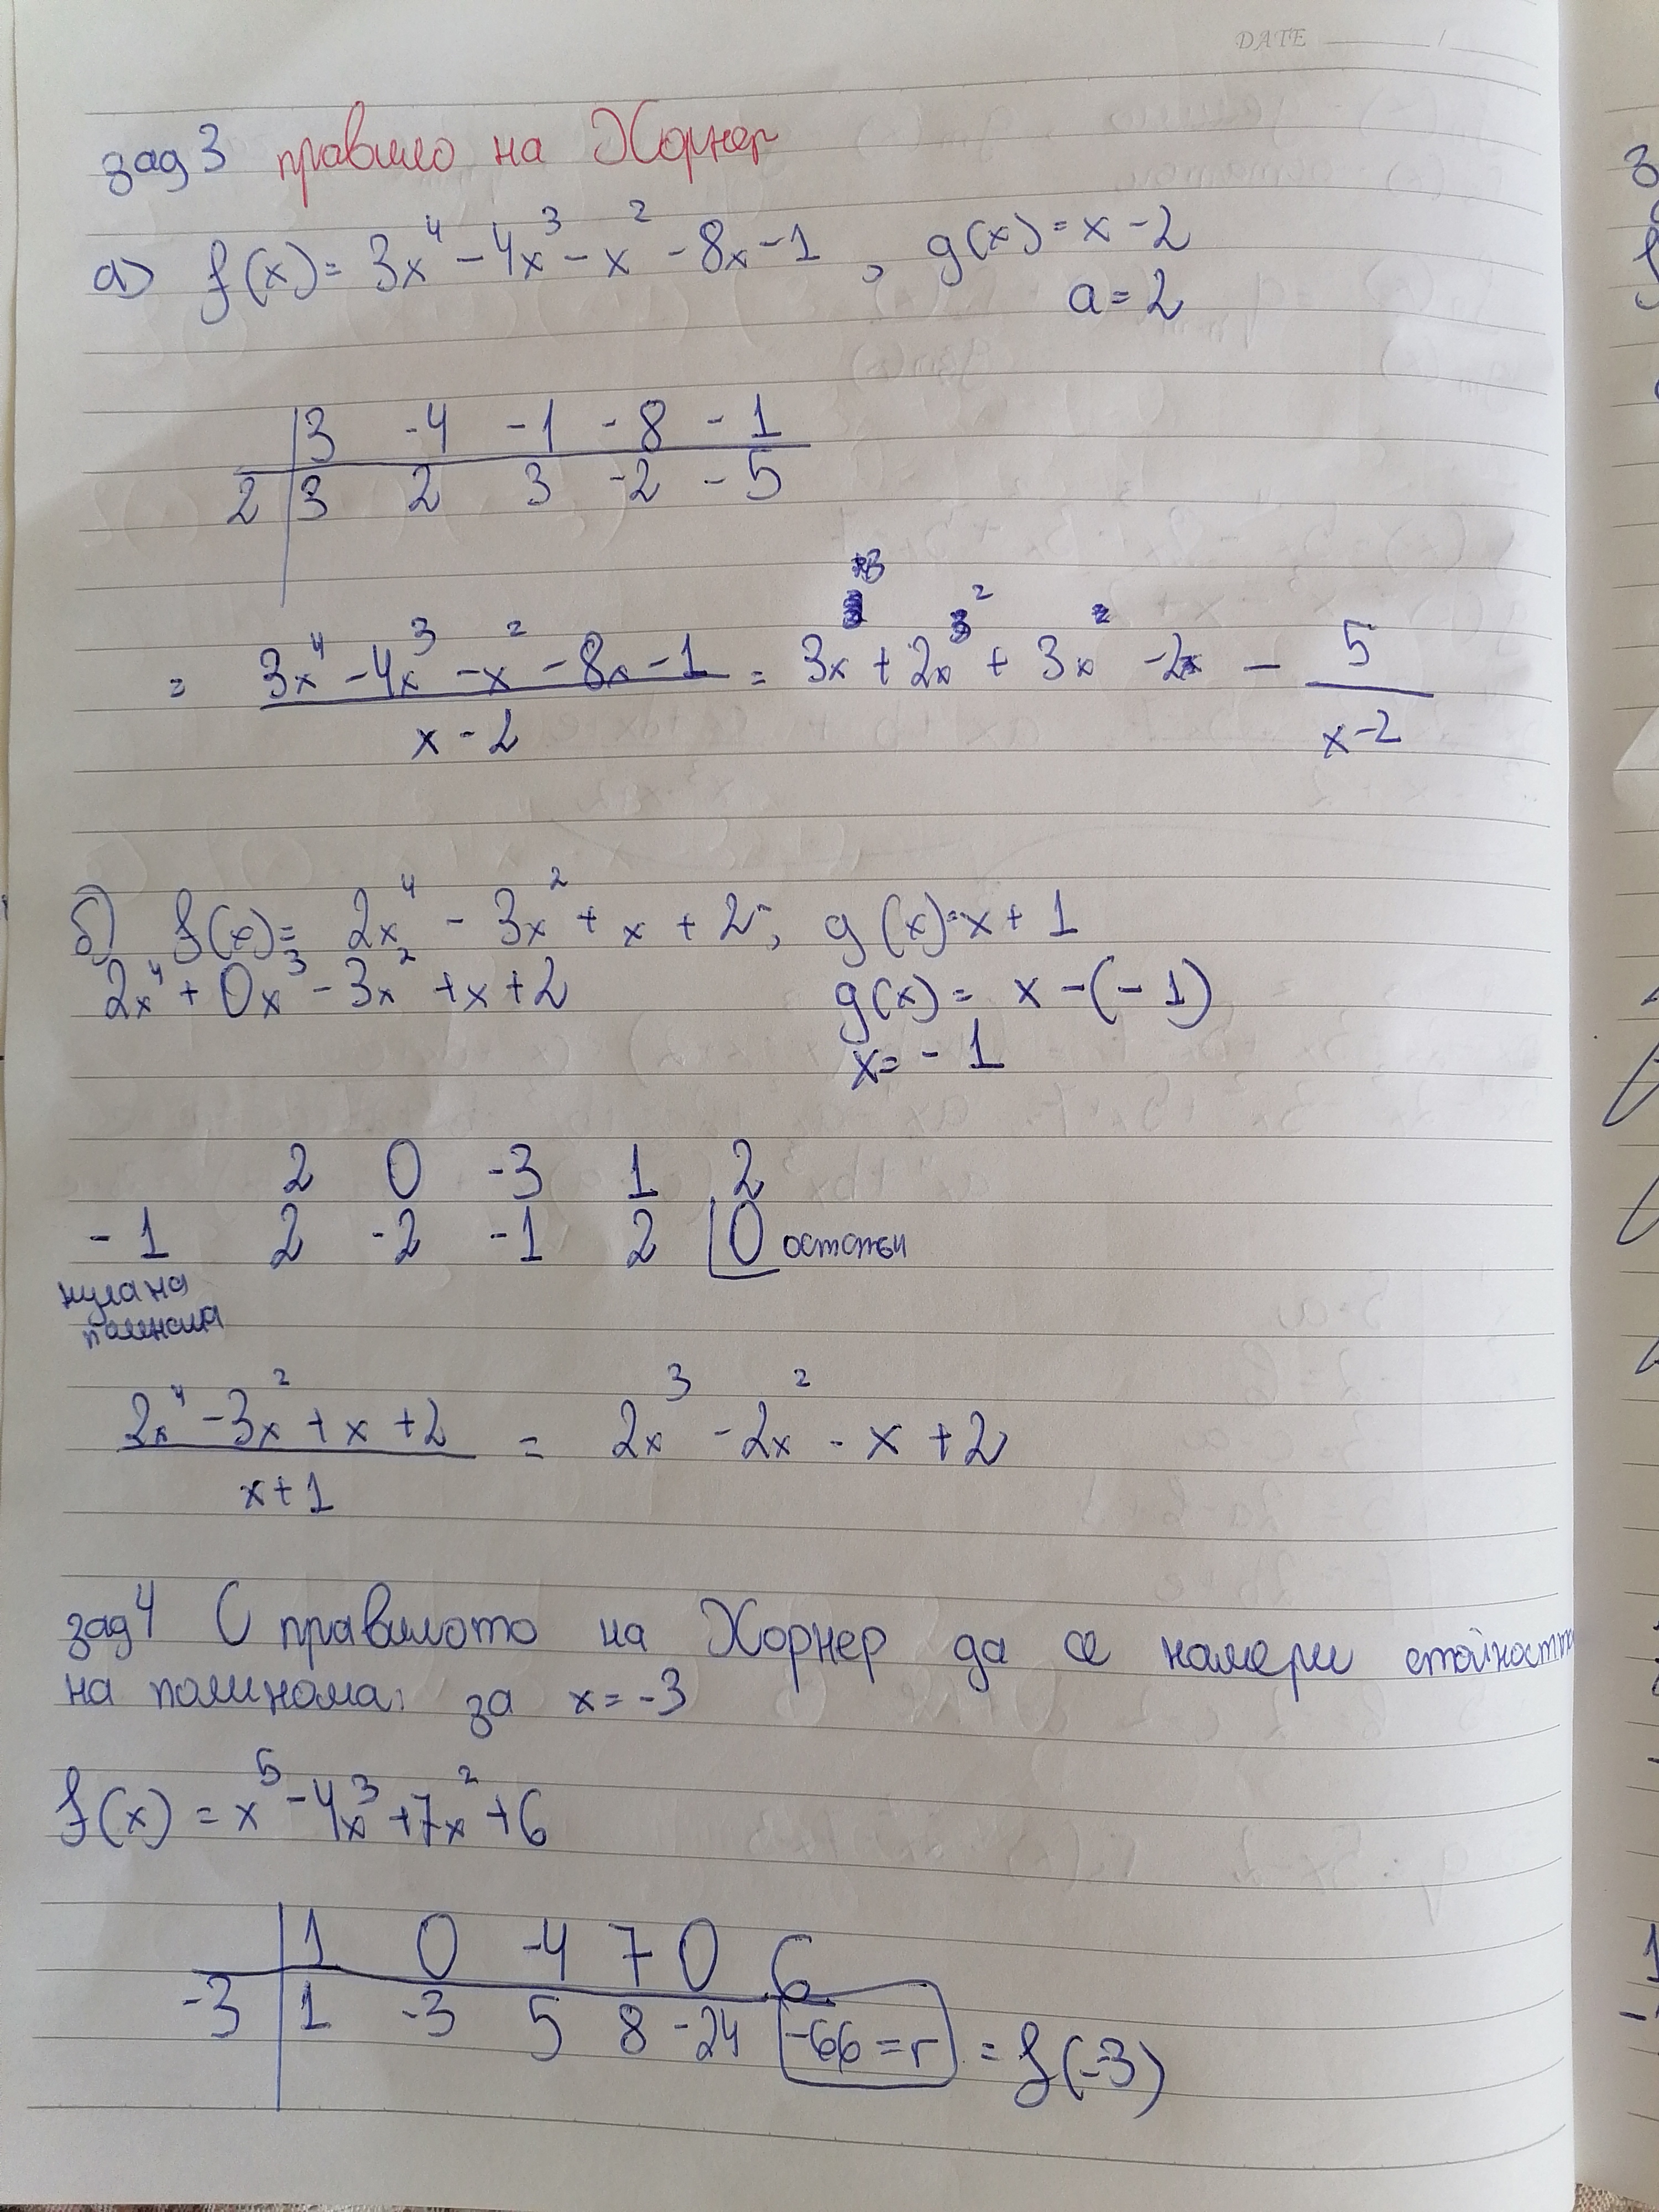 DATE
зад 3 правило на Хорнер
а) f(x) = 3x⁴ - 4x³ - x² - 8x - 1 , g(x) = x - 2
a = 2
3 -4 -1 -8 -1
2 3 2 3 -2 -5
= 3x⁴ - 4x³ - x² - 8x - 1 / x - 2 = 3x³ + 2x² + 3x - 2 - 5 / x - 2
б) f(x) = 2x⁴ - 3x² + x + 2 ; g(x) = x + 1
2x⁴ + 0x³ - 3x² + x + 2 g(x) = x - (-1)
x = -1
2 0 -3 1 2
-1 2 -2 -1 2 0 остатък
нула на
полинома
2x⁴ - 3x² + x + 2 / x + 1 = 2x³ - 2x² - x + 2
зад 4 С правилото на Хорнер да се намери стойността
на полинома: за x = -3
f(x) = x⁵ - 4x³ + 7x² + 6
1 0 -4 7 0 6
-3 1 -3 5 8 -24 -66 = r = f(-3)